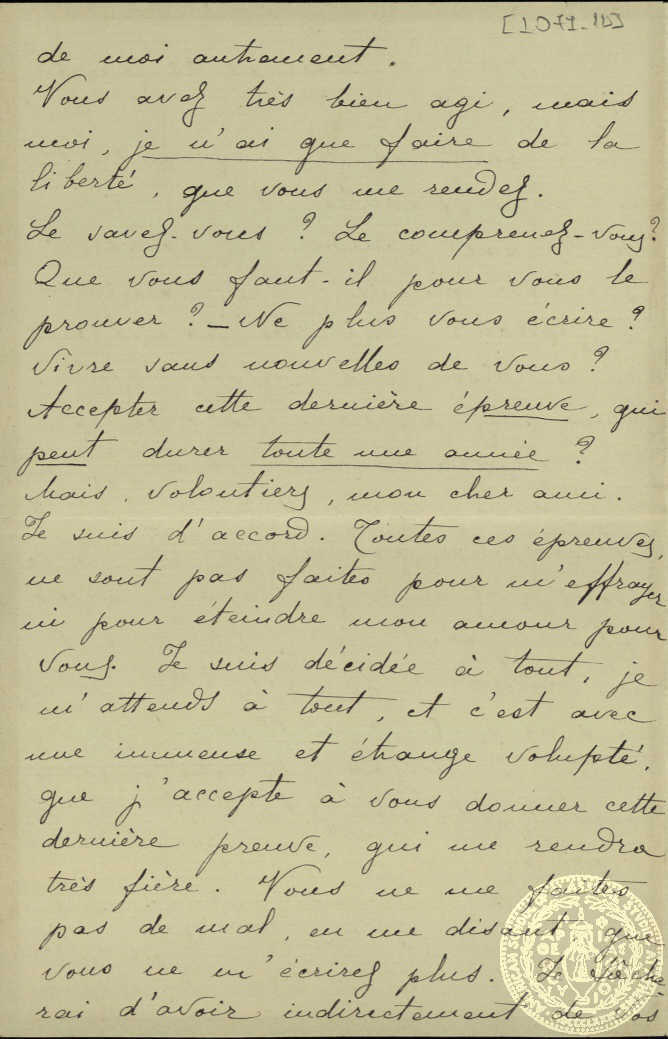 [1079-10]
de moi autrement.
Vous avez très bien agi, mais
moi, je n'ai que faire de la
liberté, que vous me rendez.
Le savez-vous ? Le comprenez-vous?
Que vous faut-il pour vous le
prouver ? — Ne plus vous écrire ?
Vivre sans nouvelles de vous ?
Accepter cette dernière épreuve, qui
peut durer toute une année ?
Mais, volontiers, mon cher ami.
Je suis d'accord. Toutes ces épreuves,
ne sont pas faites pour m'effrayer
ni pour éteindre mon amour pour
vous. Je suis décidée à tout, je
m'attends à tout, et c'est avec
une immense et étrange volupté,
que j'accepte à vous donner cette
dernière preuve, qui me rendra
très fière. Vous ne me faites
pas de mal, en me disant que
vous ne m'écrirez plus. Je tâche
rai d'avoir indirectement de vos